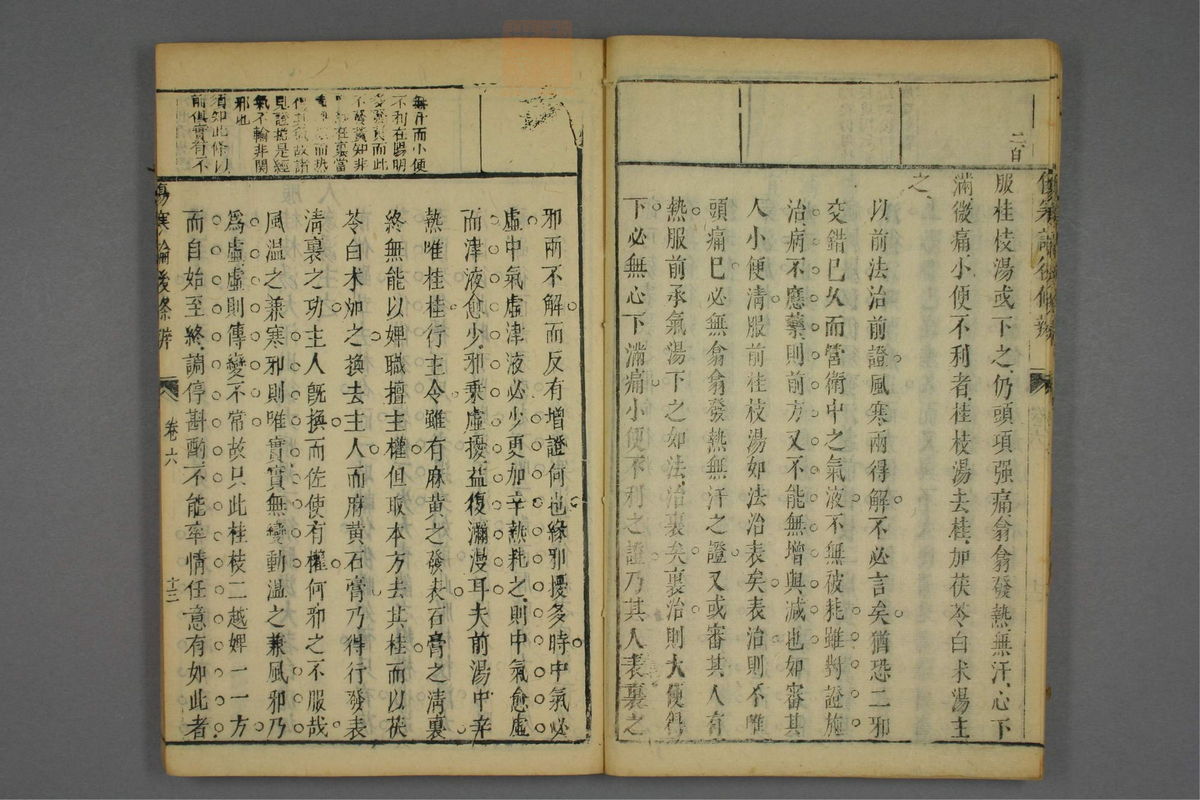 二百
服桂枝湯或下之仍頭項强痛翕翕發熱無汗心下
滿微痛小便不利者桂枝湯去桂加茯苓白术湯主
之
以前法治前證風寒兩得解不必言矣猶恐二邪
交錯已久而營衛中之氣液不無被耗雖對證施
治病不應藥則前方又不能無增與減也如審其
人小便清服前桂枝湯如法治表矣表治則不唯
頭痛巳必無翕翕發熱無汗之證又或審其人有
熱服前承氣湯下之如法治裏矣裏治則大便得
下必無心下滿痛小便不利之證乃其人表裏之
邪兩不解而反有增證何也緣邪擾多時中氣必
虛中氣虛津液必少更加辛熱耗之則中氣愈虛
而津液愈少邪乗虛擾益復瀰漫耳夫前湯中辛
熱唯桂桂行主令雖有麻黃之發表石膏之清裏
終無能以婢職擅主權但取本方去其桂而以茯
苓白术加之換去主人而麻黃石膏乃得行發表
清裏之功主人旣換而佐使有權何邪之不服哉
風温之兼寒邪則唯實實無變動温之兼風邪乃
爲虛虛則傳變不常故只此桂枝二越婢一一方
而自始至終謫停斟酌不能率情任意有如此者
無汗而小便
不利在陽明
多發黃而此
不發黃知非
在裏當
而熱
見證總是經
氣不輸非関
邪也
須知此條以
前俱實有不
傷寒論後條辨
卷六
十二